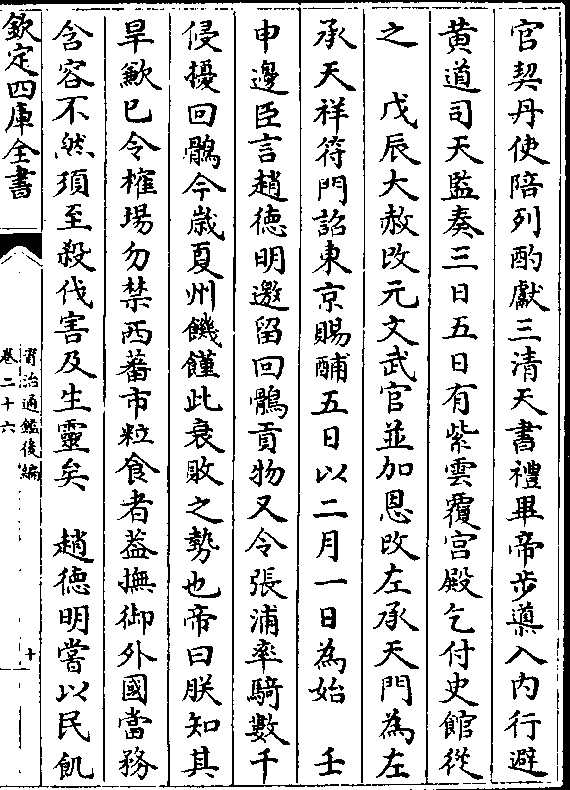 官契丹使陪列酌獻三清天書禮畢帝步導入内行避
黄道司天監奏三日五日有紫雲覆宫殿乞付史館從
之　戊辰大赦改元文武官並加恩改左承天門為左
承天祥符門詔東京賜酺五日以二月一日為始　壬
申邊臣言趙徳明邀留回鶻貢物又令張浦率騎數千
侵擾回鶻今歳夏州饑饉此衰敗之勢也帝曰朕知其
旱歉已令榷場勿禁西蕃市粒食者葢撫御外國當務
含容不然須至殺伐害及生靈矣　趙徳明嘗以民飢
欽定四庫全書
資治通鑑後編
卷二十六
十